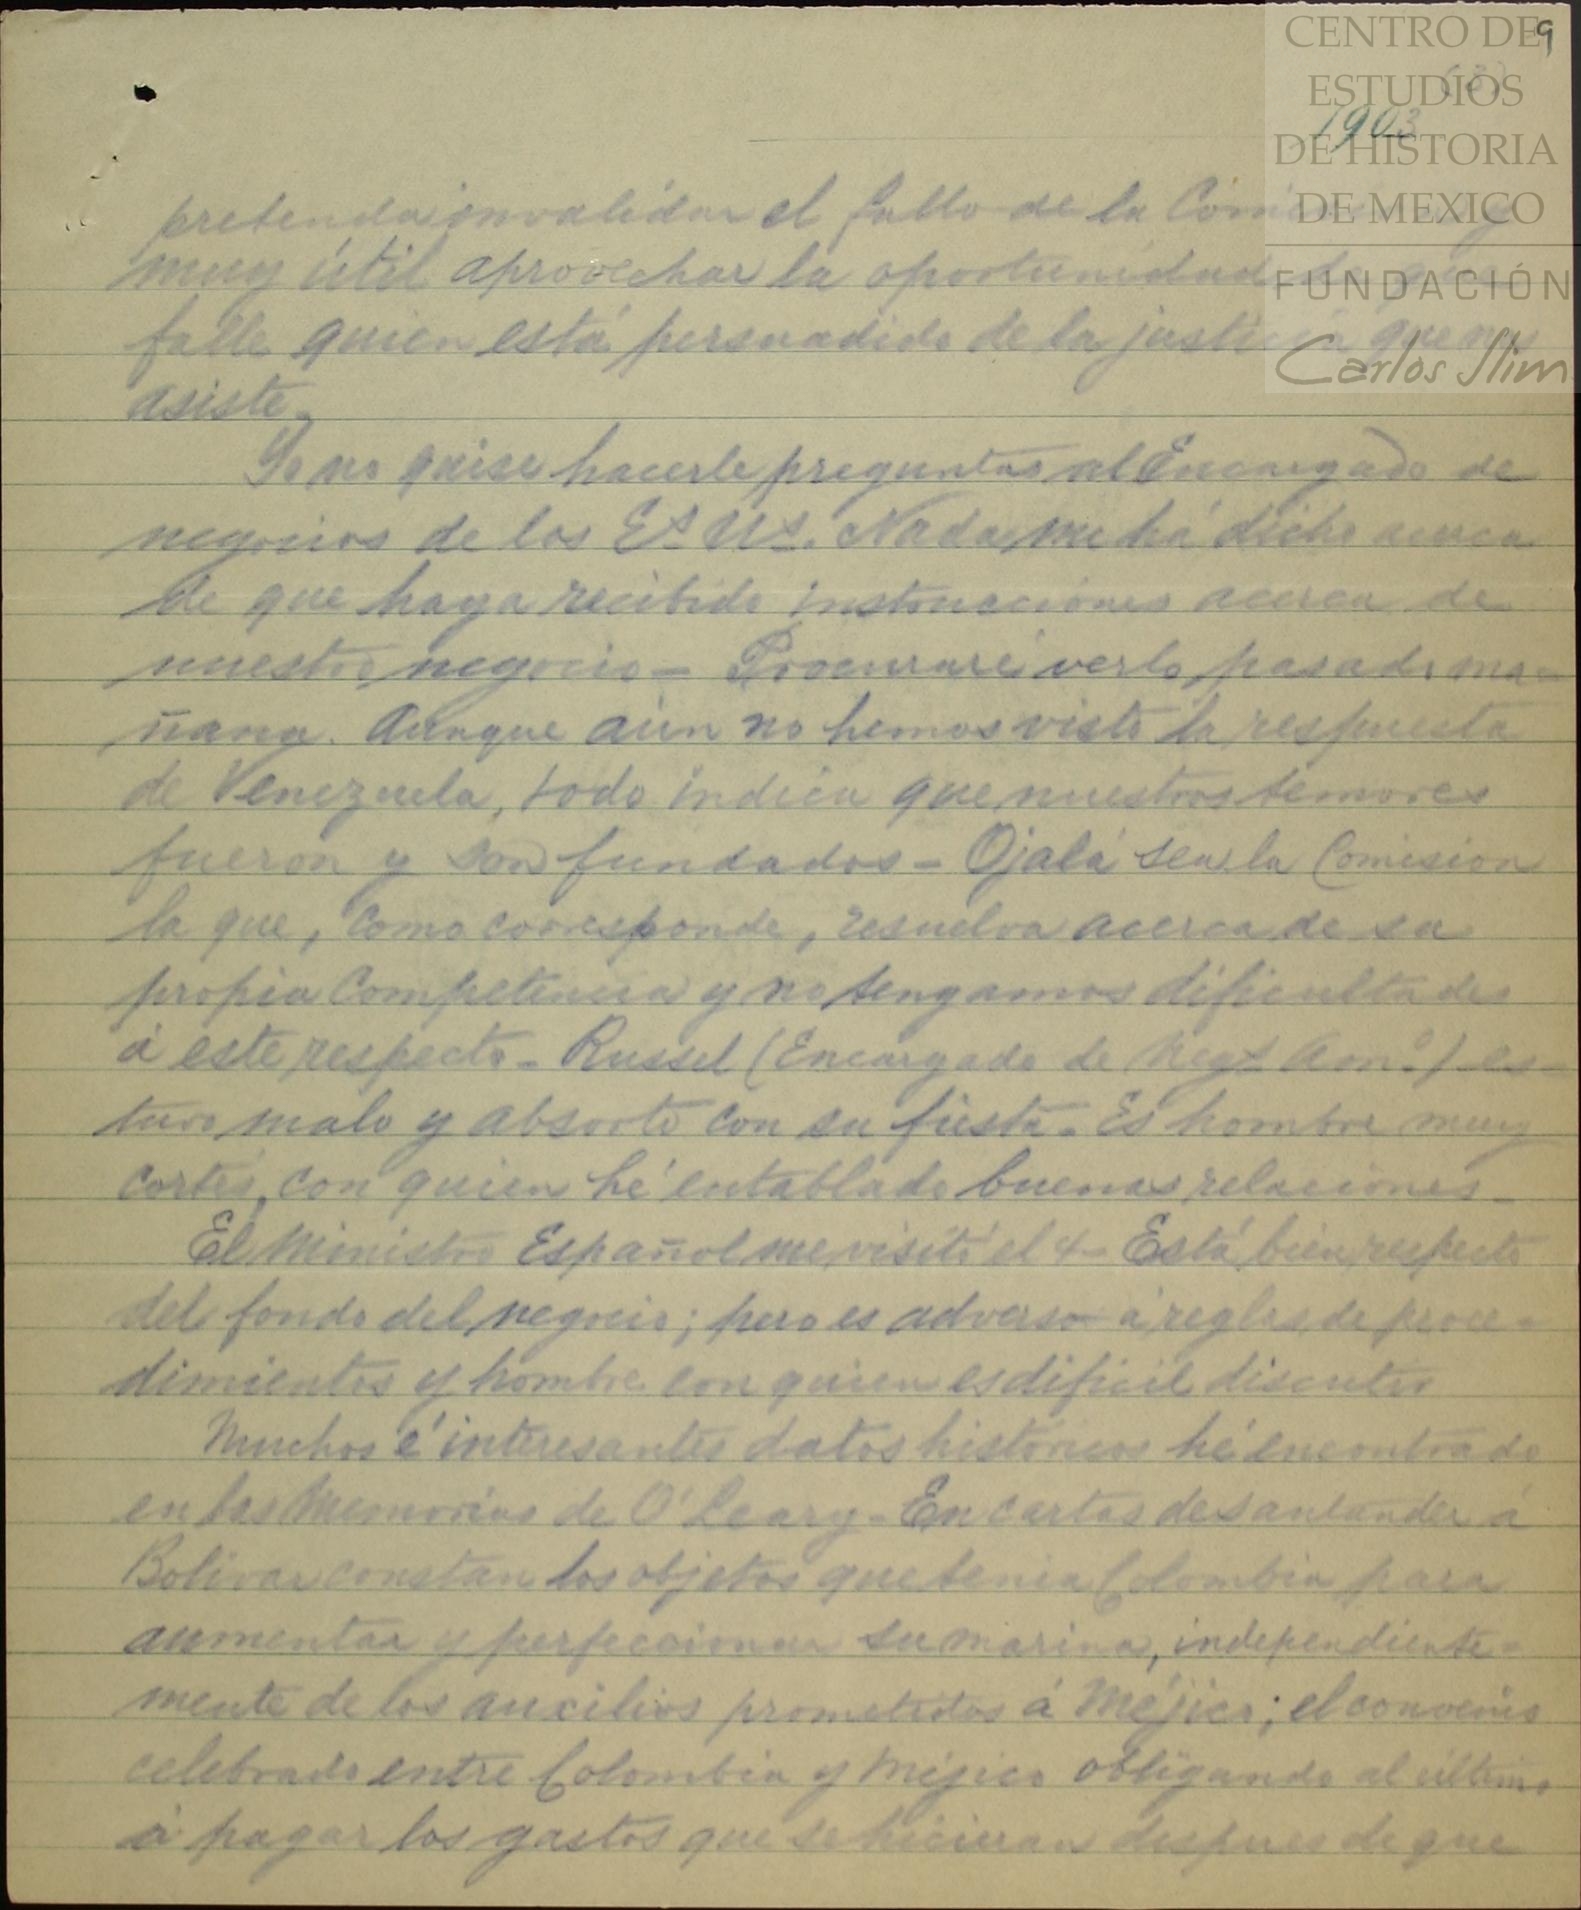 CENTRO DE
ESTUDIOS
DE HISTORIA
DE MEXICO
FUNDACIÓN
Carlos Slim
9
(3)
1903
pretenda invalidar el fallo de la y
muy útil aprovechar la oportunidad de que
falle quien está persuadido de la justicia que nos
asiste.
Yo no quise hacerle preguntas al Encargado de
negocios de los Es. Us. Nada me há dicho acerca
de que haya recibido instrucciones acerca de
nuestro negocio - Procuraré verlo pasado ma-
ñana. Aunque aún no hemos visto la respuesta
de Venezuela, todo indica que nuestros temores
fueron y son fundados - Ojalá sea la Comision
la que, como corresponde, resuelva acerca de su
propia Competencia y no tengamos dificultades
á este respecto - Russel (Encargado de Negs. Amo.) es-
tuvo malo y absorto con su fiesta. Es hombre muy
cortés, con quien hé entablado buenas relaciones -
El Ministro Español me visitó el 4 - Está bien respecto
del fondo del negocio; pero es adverso á reglas de proce-
dimientos y hombre con quien es dificil discutir
Muchos é interesantes datos históricos hé encontrado
en las Memorias de O'Leary - En cartas de Santander á
Bolivar constan los objetos que tenia Colombia para
aumentar y perfeccionar su marina, independiente-
mente de los auxilios prometidos á Méjico; el convenio
celebrado entre Colombia y Méjico obligando al último
á pagar los gastos que se hicieran despues de que